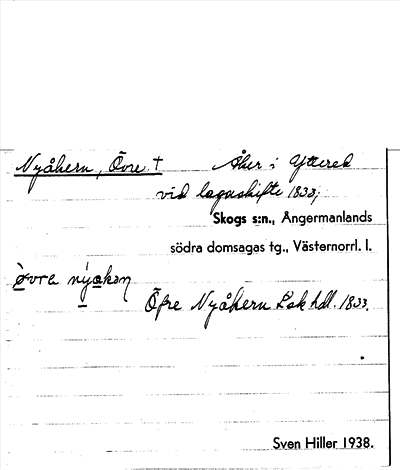 Nyåkern, Övre † Åker i Ytterek
vid lagaskifte 1833;
Skogs s:n., Ångermanlands
södra domsagas tg., Västernorrl. l.
Öfre Nyåkern Lsk hdl. 1833.
Sven Hiller 1938.